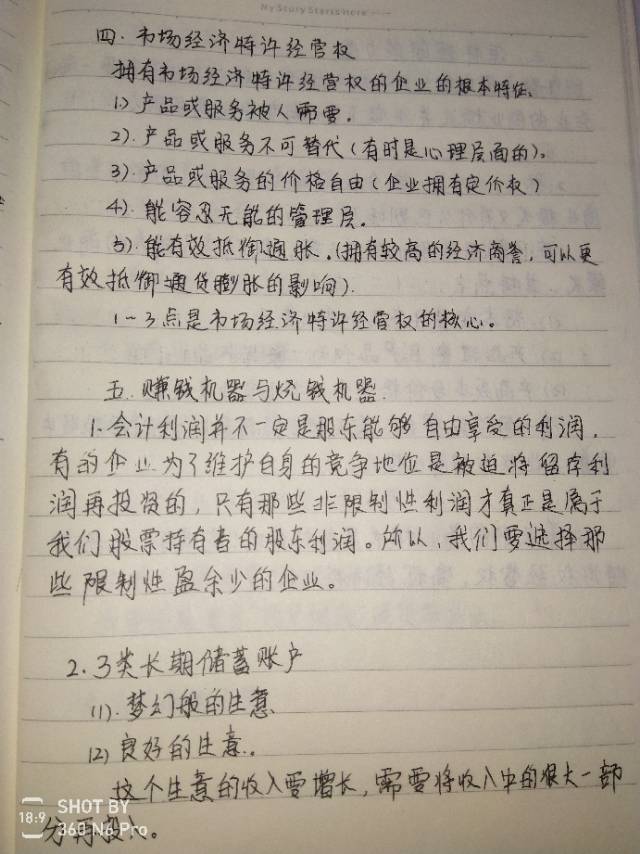 My Story Starts Here
四. 市场经济特许经营权
拥有市场经济特许经营权的企业的根本特征.
1) 产品或服务被人需要.
2). 产品或服务不可替代(有时是心理层面的)。
3). 产品或服务的价格自由(企业拥有定价权)
4). 能容忍无能的管理层。
5). 能有效抵御通胀.(拥有较高的经济商誉,可以更
有效抵御通货膨胀的影响).
1~3点是市场经济特许经营权的核心。
五. 赚钱机器与烧钱机器.
1. 会计利润并不一定是股东能够自由享受的利润,
有的企业为了维护自身的竞争地位是被迫将留存利
润再投资的,只有那些非限制性利润才真正是属于
我们股票持有者的股东利润。所以,我们要选择那
些限制性盈余少的企业。
2. 3类长期储蓄账户
(1). 梦幻般的生意
(2) 良好的生意.
这个生意的收入要增长,需要将收入中的很大一部
分再投入。
18:9 SHOT BY
360 N6 Pro